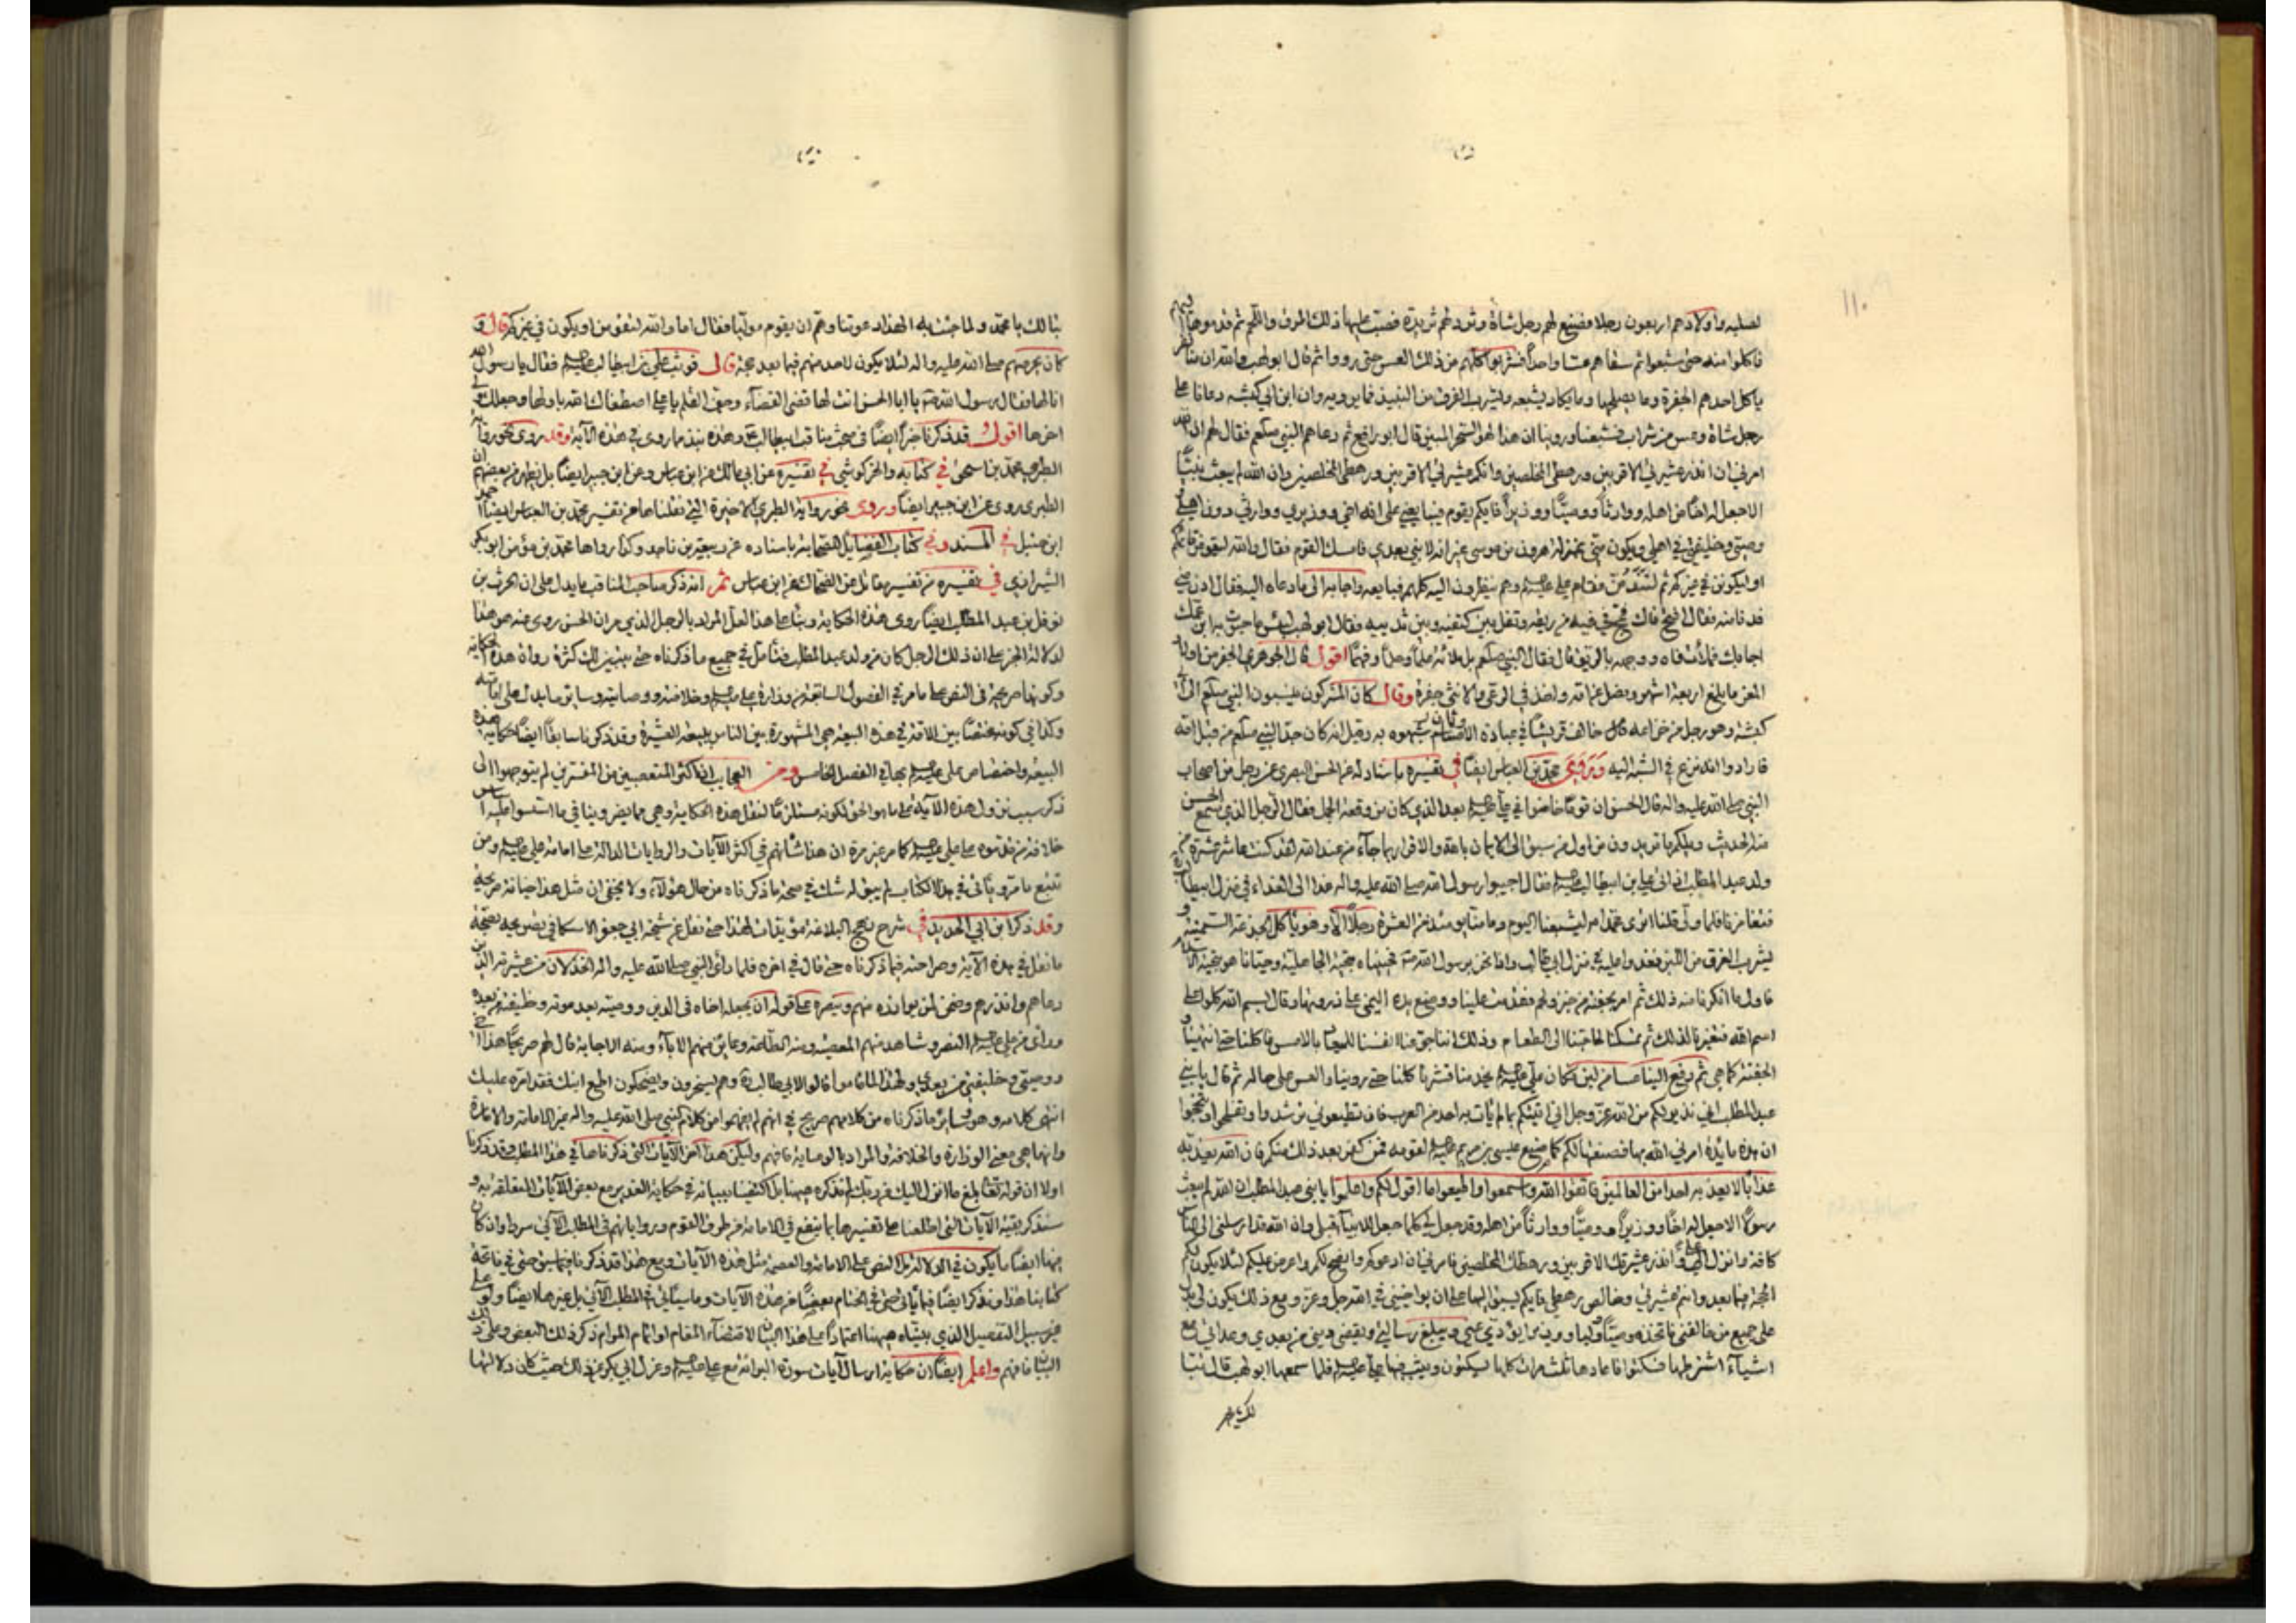 لصلبه واولادهم اربعون رجلا فصنع لهم رجل شاة وثرد لهم ثريدة فصب عليها ذلك المرق واللحم ثم قدموها اليهم
فاكلوا منه حتى شبعوا ثم سقاهم عسا واحدا فشربوا كلهم من ذلك العس حتى رووا ثم قال ابو لهب والله ان منا لنفر
ياكل احدهم الجفرة وما يصلحها وما يكاد يشبعه ويشرب الفرق من النبيذ فما يرويه وان ابن ابي كبشه دعانا على
رجل شاة وعس من شراب فشبعنا وروينا ان هذا لهو السحر المبين قال ابو رافع ثم دعاهم النبي صلعم فقال لهم ان الله
امرني ان انذر عشيرتي الاقربين ورهطي المخلصين وانكم عشيرتي الاقربين ورهطي المخلصين وان الله لم يبعث نبيا
الا جعل له اخا من اهله ووارثا ووصيا ووزيرا فايكم يقوم فيبايعني على انه اخي ووزيري ووارثي دون اهلي
وصيي وخليفتي في اهلي ويكون مني بمنزلة هرون من موسى غير انه لا نبي بعدي فامسك القوم فقال والله ليقومن قائمكم
او ليكونن في غيركم ثم لتندمن فقام علي عليه السلم وهم ينظرون اليه كلهم فبايعه واجابه الى ما دعاه اليه فقال ادن مني
فدنا منه فقال افتح فاك فمج في فيه من ريقه وتفل بين كتفيه وبين ثدييه فقال ابو لهب لبئس ما حبوت به ابن عمك
اجابك فملأت فاه ووجهه بالريق قال فقال النبي صلعم بل ملأته علما وحلما وفهما اقول قال الجوهري الجفر من اولاد
المعز ما بلغ اربعة اشهر وفصل عن امه واخذ في الرعي والانثى جفرة وقال كان المشركون ينسبون النبي صلعم الى ابي
كبشه وهو رجل من خزاعه خالف قريشا في عبادة الاوثان شبهوه به وقيل انه كان جد النبي صلعم من قبل امه
فارادوا انه نزع في الشبه اليه وروى محمد بن العباس ايضا في تفسيره باسناد له عن الحسن البصري عن رجل من اصحاب
النبي صلى الله عليه واله قال الحسن ان قوما خاضوا في علي عليه السلم بعد الذي كان من وقعة الجمل فقال الرجل الذي سمع الحسن
منه الحديث ويلكم ما تريدون من اول من سبق الى الايمان بالله والاقرار بما جاء من عند الله لقد كنت عاشر عشرة من
ولد عبد المطلب اذ اتى علي بن ابيطالب عليه السلم فقال اجيبوا رسول الله صلى الله عليه واله غدا الى الغداء في منزل ابيطالب
فتغامزنا فلما ولى قلنا اترى محمدا ان يشبعنا اليوم وما منا يومئذ من العشرة رجلا الا وهو ياكل الجذعة السمينة و
يشرب الفرق من اللبن فغدوا عليه في منزل ابي طالب واذا نحن برسول الله ص فحييناه بتحية الجاهلية وحيانا هو بتحية الاسلام
فاول ما انكرنا منه ذلك ثم امر بجفنة من خبز ولحم فقدمت علينا ووضع يده اليمنى على ذروتها وقال بسم الله كلوا على
اسم الله فتغيرنا لذلك ثم تمسكنا لحاجتنا الى الطعام وذلك اننا جوعنا انفسنا للميعاد بالامس فاكلنا حتى انتهينا و
الجفنة كما هي ثم دفع الينا عسا من لبن فكان علي عليه السلم يخدمنا فشربنا كلنا حتى روينا والعس على حاله ثم قال يا بني
عبد المطلب اني نذير لكم من الله عز وجل اني اتيتكم بما لم يات به احد من العرب فان تطيعوني ترشدوا وتفلحوا وتنجحوا
ان هذه مائدة امرني الله بها فصنعتها لكم كما صنع عيسى بن مريم عليه السلم لقومه فمن كفر بعد ذلك منكم فان الله يعذبه
عذابا لا يعذبه احدا من العالمين فاتقوا الله واسمعوا واطيعوا ما اقول لكم واعلموا يا بني عبد المطلب ان الله لم يبعث
رسولا الا جعل له اخا ووزيرا ووصيا ووارثا من اهله وقد جعل لي كما جعل للانبياء قبلي وان الله قد ارسلني الى الناس
كافة وانزل علي وانذر عشيرتك الاقربين ورهطك المخلصين فامرني ان ادعوكم وانصح لكم واعرض عليكم لئلا يكون لكم
الحجة فيما بعد وانتم عشيرتي وخالص رهطي فايكم يسبق اليها على ان يواخيني في الله جل وعز ومع ذلك يكون لي يدا
على جميع من خالفني فاتخذه وصيا وليا ووزيرا يؤدي عني ويبلغ رسالتي ويقضي ديني من بعدي وعداتي مع
اشياء اشترطها فسكتوا فاعادها ثلث مرات كلها يسكتون ويثب فيها علي عليه السلم فلما سمعها ابو لهب قال تبا
لك يا محمد
تبا لك يا محمد ولما جئت به الهذا دعوتنا وهم ان يقوم موليا فقال اما والله لتقومن او يكون في غيركم قال و
كان يحرضهم صلى الله عليه واله لئلا يكون لاحد منهم فيما بعد حجة قال فوثب علي بن ابيطالب عليه السلم فقال يا رسول الله
انا لها فقال رسول الله ص يا ابا الحسن انت لها قضي القضاء وجف القلم يا علي اصطفاك الله باولها وجعلك ولي
اخرها اقول قد ذكرنا خبرا ايضا في بحث مناقب ابيطالب وهذه نبذ ما روي في هذه الاية وقد روى نحو رواية
الطبري محمد بن اسحق في كتابه والخركوشي في تفسيره عن ابي مالك عن ابن عباس وعن ابن جبير ايضا بل يظهر من بعضهم ان
الطبري روى عن ابن جبير ايضا وروى نحو رواية الطبري الاخيرة التي نقلناها من تفسير محمد بن العباس ايضا احمد
ابن حنبل في المسند وفي كتاب الفضايل للصحابة باسناده عن ربيعة بن ناجد وكذا رواها محمد بن مؤمن ابو بكر
الشيرازي في تفسيره من تفسير مقاتل عن الضحاك عن ابن عباس ثم انه ذكر صاحب المناقب ما يدل على ان الحرث بن
نوفل بن عبد المطلب ايضا روى هذه الحكاية وبناء على هذا لعل المراد بالرجل الذي مر ان الحسن روى عنه هو هذا
لدلالة الخبر على ان ذلك الرجل كان من ولد عبد المطلب فتامل في جميع ما ذكرناه حتى يتبين لك كثرة رواة هذه الحكاية
وكونها صريحة في النص على ما مر في الفصول السابقة من وزارة علي عليه السلم وخلافته ووصايته وسائر ما يدل على امامته
وكذا في كونه مختصا بين الامة في هذه البيعة هي المشهورة بين الناس ببيعة العشيرة وقد ذكرنا سابقا ايضا حكاية هذه
البيعة واختصاص علي عليه السلم بها في الفصل الخامس ومن العجايب ان اكثر المتعصبين من المفسرين لم يتوجهوا الى
ذكر سبب نزول هذه الاية على ما هو الحق لكونه مستلزما لنقل هذه الحكاية وهي مما يضر وينافي ما اسسوا عليه اساس
خلافة من قدموه على علي عليه السلم كما مر غير مرة ان هذا شانهم في اكثر الايات والروايات الدالة على امامة علي عليه السلم ومن
تتبع ما مر وياتي في هذا الكتاب لم يبق له شك في صحة ما ذكرناه من حال هؤلاء ولا يخفى ان مثل هذا خيانة صريحة
وقد ذكر ابن ابي الحديد في شرح نهج البلاغة مؤيدات لهذا حتى نقل عن شيخه ابي جعفر الاسكافي تصريحه بصحة
ما نقل في هذه الاية وصراحته فيما ذكرناه حتى قال في اخره فلما راى النبي صلى الله عليه واله الخذلان من عشيرته الذين
دعاهم وانذرهم وضمن لمن يوازره منهم وينصره على قوله ان يجعله اخاه في الدين ووصيه بعد موته وخليفته من بعده
وراى من علي عليه السلم النصر وشاهد منهم المعصية ومنه الطاعة وعاين منهم الاباء ومنه الاجابة قال لهم صريحا هذا اخي
ووصيي وخليفتي من بعدي ولهذا لما قاموا قالوا لابي طالب وهم يسخرون ويضحكون اطع ابنك فقد امره عليك
انتهى كلامه وهو وسائر ما ذكرناه من كلامهم صريح في انهم لم يفهموا من كلام النبي صلى الله عليه واله غير الامامة والامارة
وانها هي معنى الوزارة والخلافة والمراد بالوصاية فافهم وليكن هذا اخر الايات التي ذكرناها في هذا المطلب وقد ذكرنا
اولا ان قوله تعالى بلغ ما انزل اليك من ربك لم نذكره هيهنا بل اكتفينا ببيانه في حكاية الغدير مع بعض الايات المتعلقة به و
سنذكر بقية الايات التي اطلعنا على تفسيرها بما ينفع في الامامة من طرق القوم ورواياتهم في المطلب الاتي سردا وان كان
منها ايضا ما يكون في الدلالة على النص على الامامة والعصمة مثل هذه الايات ومع هذا قد ذكرنا فيما سبق حتى في فاتحة
كتابنا هذا ونذكر ايضا فيما ياتي حتى في الختام بعضا من هذه الايات وما سياتي في المطلب الاتي بل غيرها ايضا ولو على
غير سبيل التفصيل الذي بيناه هيهنا اعتمادا على هذا البيان لاقتضاء المقام او اتمام المرام ذكر ذلك البعض وعلى ذلك
البيان فافهم واعلم ايضا ان حكاية ارسال ايات سورة البراءة مع علي عليه السلم وعزل ابي بكر عن ذلك حيث كان دلالتها